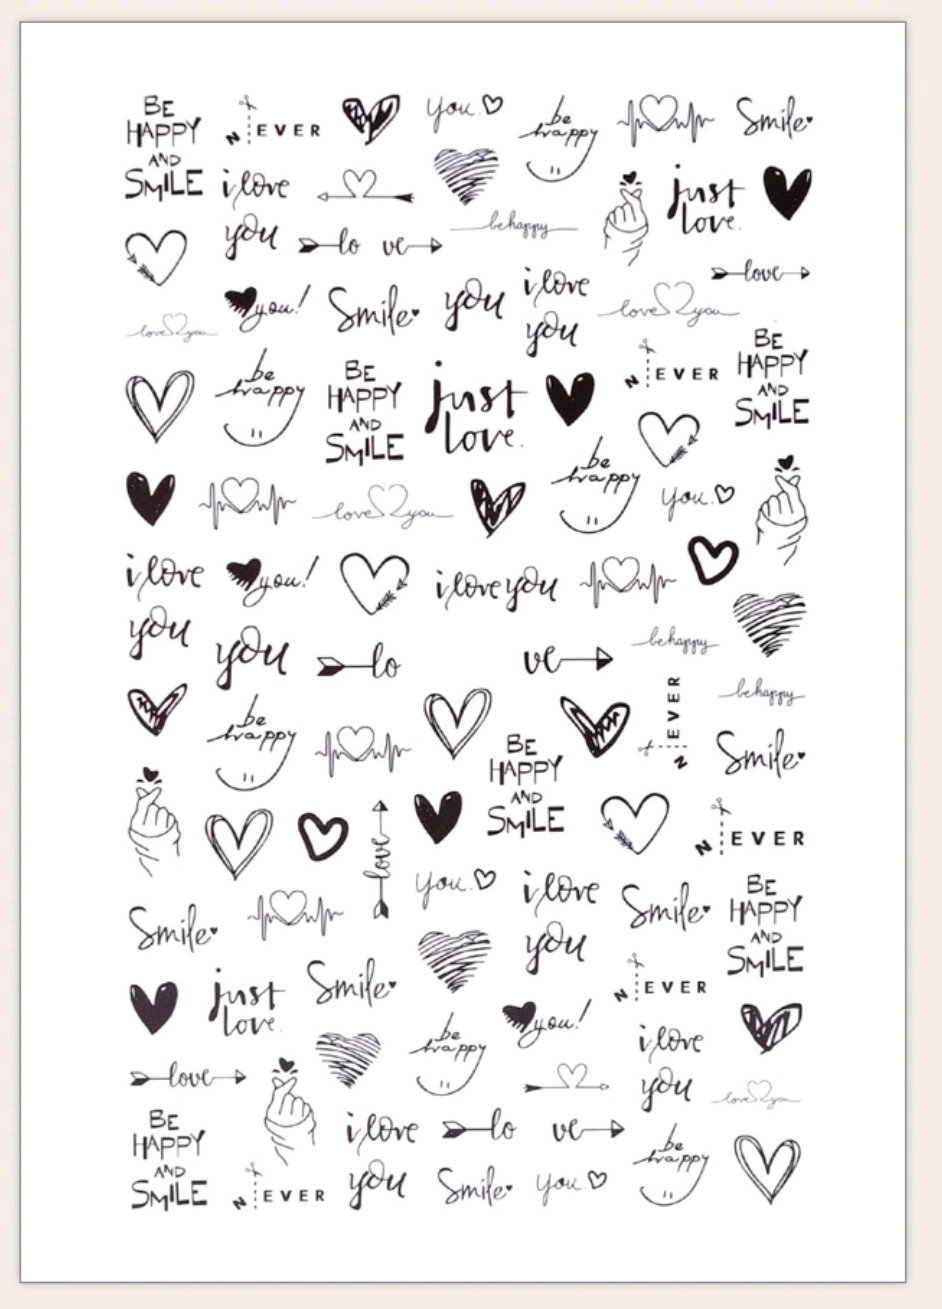 BE
HAPPY
AND
SMILE
N EVER
you.
be
happy
Smile
i love
you
just
love.
be happy
lo ve
love
love you
you!
Smile
you
i love
you
love you
N EVER
BE
HAPPY
AND
SMILE
be
happy
BE
HAPPY
AND
SMILE
just
love.
be
happy
you.
love you
i love
you
you!
i love you
you
lo ve
be happy
be happy
be
happy
N EVER
Smile
BE
HAPPY
AND
SMILE
love
N EVER
you.
i love
you
Smile
BE
HAPPY
AND
SMILE
Smile
just
love.
Smile
N EVER
you!
be
happy
i love
you
love
love you
BE
HAPPY
AND
SMILE
i love
you
lo ve
be
happy
N EVER
Smile
you.